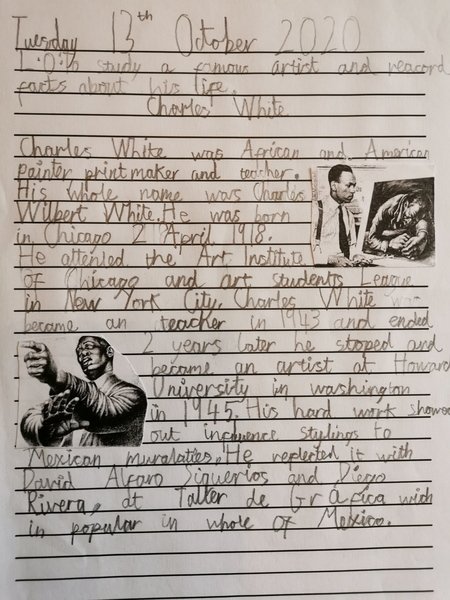 Tuesday 13th October 2020
L.O. to study a famous artist and reacord
facts about his life.
Charles White
Charles White was African and American
painter printmaker and teacher.
His whole name was Charles
Wilbert White. He was born
in Chicago 2 April 1918.
He attended the Art Institute
of Chicago and art students League
in New York City. Charles White was
became an teacher in 1943 and ended
2 years later he stoped and
became an artist at Howard
University in washington
in 1945. His hard work showed
out influence stylings to
Mexican muralaties. He replected it with
David Alfaro Siquerios and Diego
Rivera, at Taller de Gráfica wich
in popular in whole of Mexico.